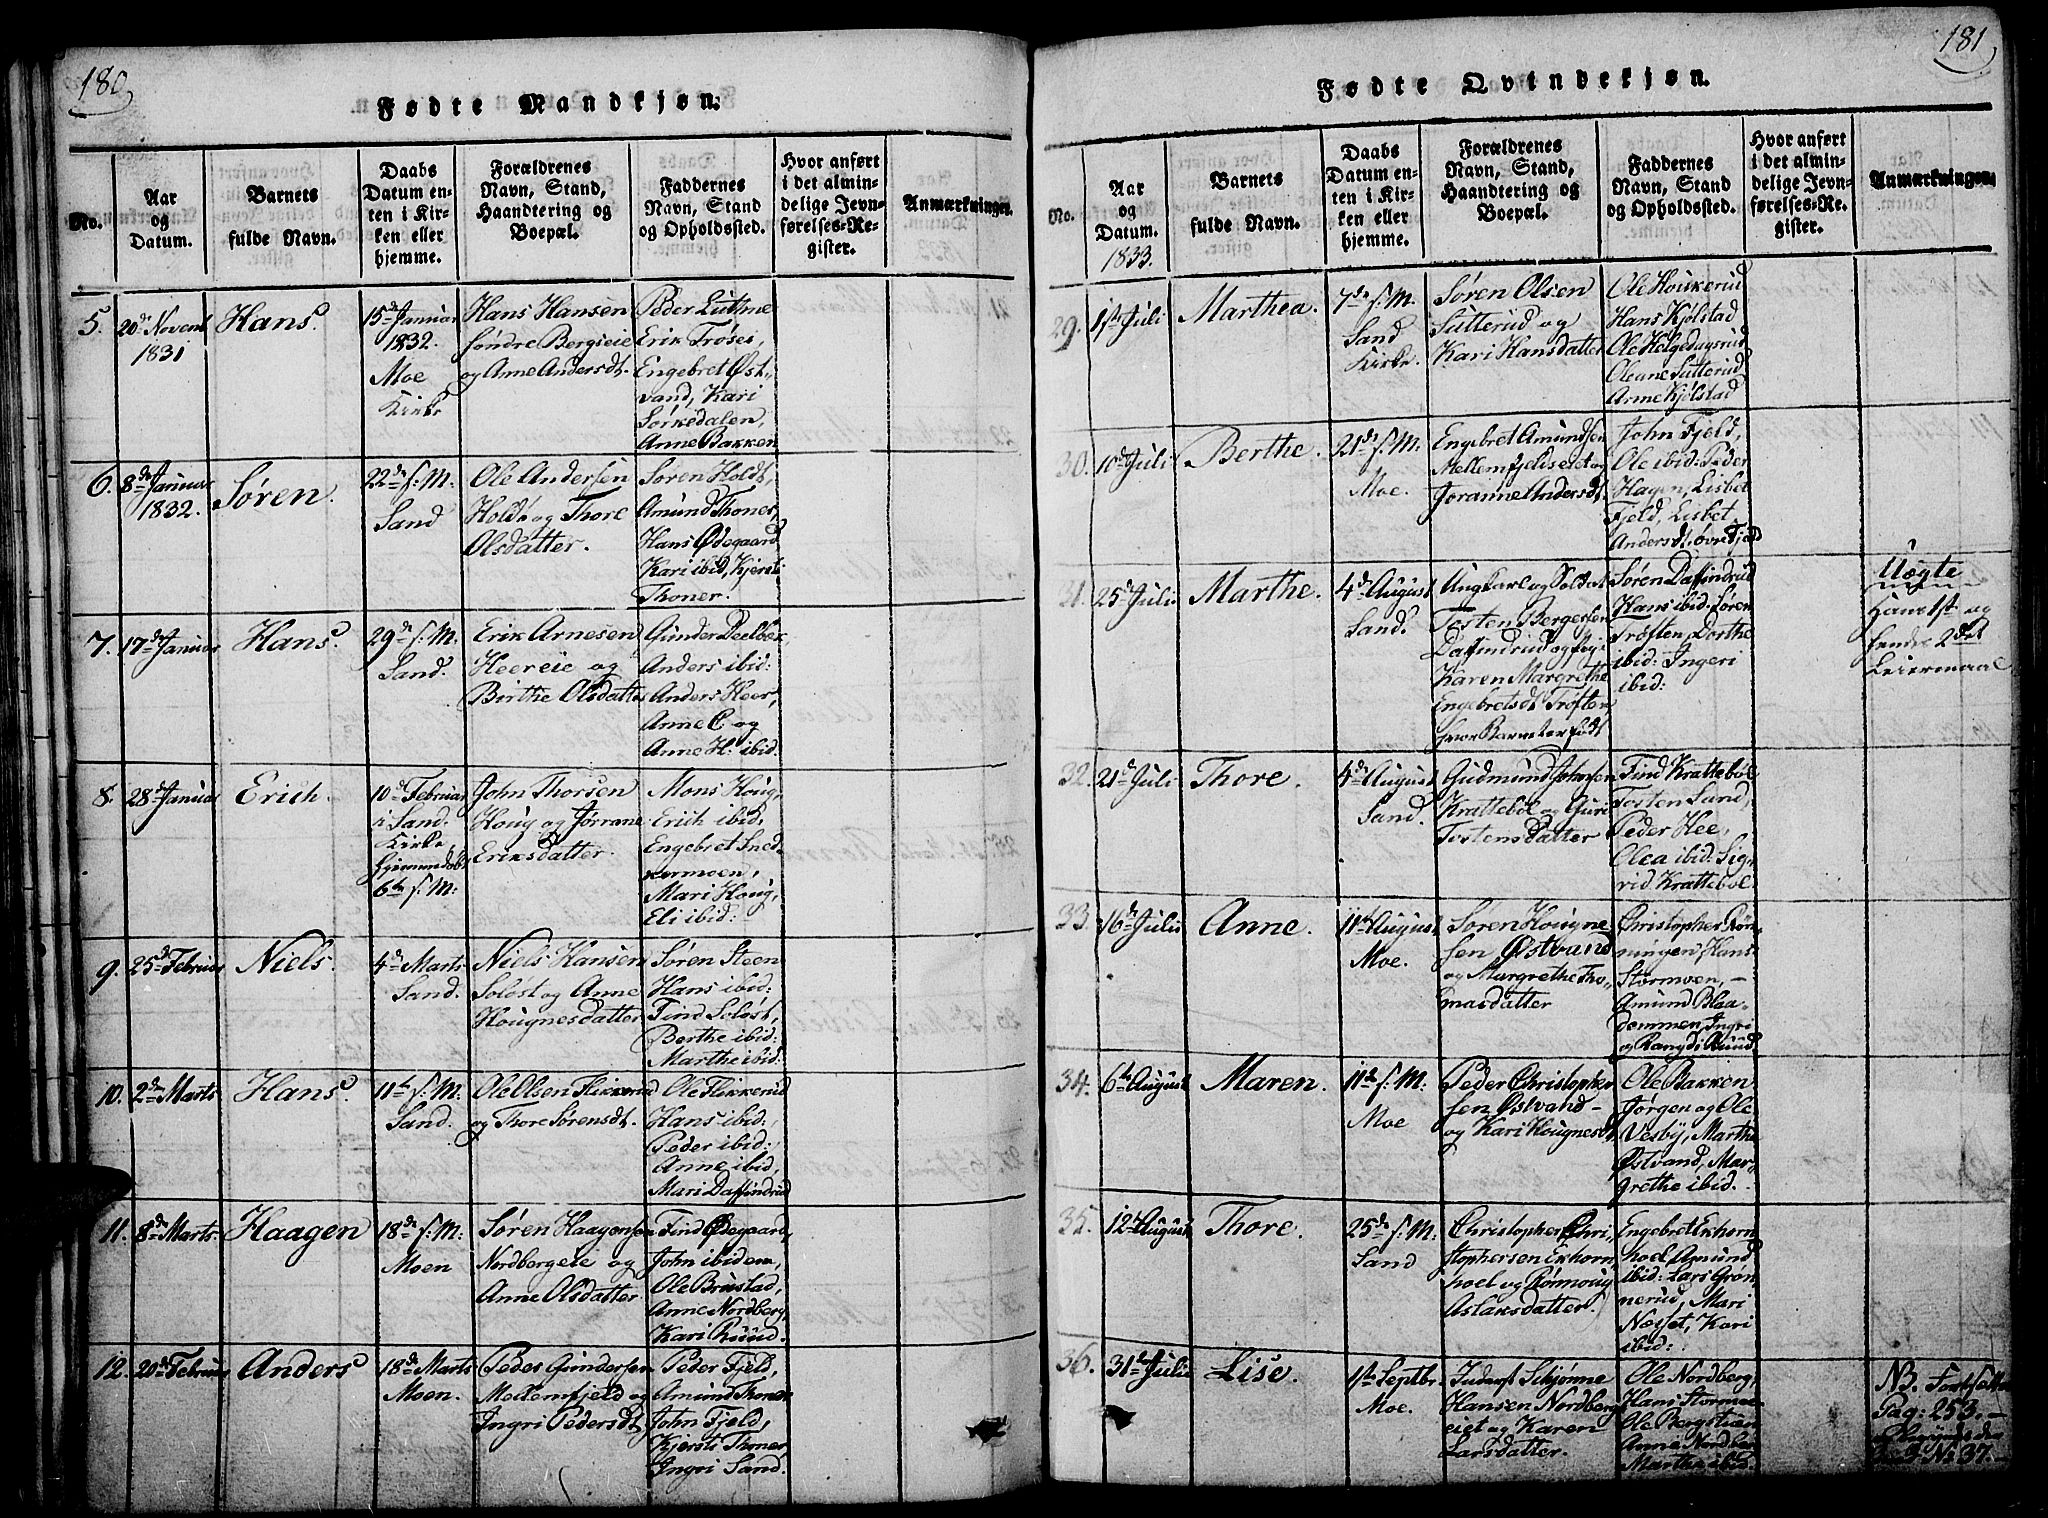 180
Fødte Mandkjøn.
No.
Aar
og
Datum.
Barnets
fulde Navn.
Daabs
Datum en-
ten i Kir-
ken eller
hjemme.
Forældrenes
Navn, Stand,
Haandtering og
Boepæl.
Faddernes
Navn, Stand
og Opholdssted.
Hvor anført
i det almin-
delige Jevn-
førelses-Re-
gister.
Anmærkninger.
5.
20de Novemb
1831
Hans.
15de Januar
1832.
Moe
Kirke
Hans Hansen
søndre Bergseie
og Anne Andersdt.
Peder
Erik Trøsei,
Engebret Øst-
vand, Kari
Sørkedalen,
Anne Bakken
6.
8de Januar
1832.
Søren.
22de s: M.
Sand
Ole Andersen
Holdt og Thore
Olsdatter.
Søren Holdt,
Amund Thoner,
Hans Ødegaard
Kari ibid, Kjersti
Thoner.
7.
17de Januar
Hans.
29de s: M:
Sand.
Erik Arnesen
Heereie og
Birthe Olsdatter
Gunder Deelbek,
Anders ibid:
Anders Heer,
Anne C og
Anne H: ibid
8.
28de Januar
Erich.
10de Februar
i Sand
Kirke
hjemmedøbt
6te s: M:
John Thorsen
Houg og Jørrane
Eriksdatter.
Mons Houg,
Erich ibid,
Engebret Sned-
kermoen,
Mari Houg,
Eli ibid:
9.
25de Februar
Niels.
4de Marts
Sand.
Niels Hansen
Soløst og Anne
Hougnesdatter
Søren Steen
Hans ibid:
Find Soløst,
Berthe ibid:
Marthe ibid:
10.
2den Marts
Hans
11te s: M
Sand.
Ole Olsen Flikkerud
og Thore Sørensdt.
Ole Flikkerud
Hans ibid:,
Peder ibid:
Anne ibid,
Mari Daffindrud
11.
8de Marts
Haagen
18de s: M:
Moen
Søren Haagensen
Nordbergeie og
Anne Olsdatter
Find Ødegaard,
John ibidem,
Ole Brustad,
Anne Nordberg,
Kari Ruud.
12.
20de Februar
Anders
18de Marts
Moen.
Peder Gundersen
Mellemfjeld og
Ingri Pedersdt
Peder Fjeld,
Amund Thoner
John Fjeld,
Kjersti Thoner,
Ingri Sand.
181
Fødte Qvindekjøn.
No.
Aar
og
Datum.
1833.
Barnets
fulde Navn.
Daabs
Datum en-
ten i Kir-
ken eller
hjemme.
Forældrenes
Navn, Stand,
Haandtering og
Boepæl.
Faddernes
Navn, Stand
og Opholdssted.
Hvor anført
i det almin-
delige Jevn-
førelses-Re-
gister.
Anmærkninger.
29.
1ste Juli
Marthea.
7de s: M.
Sand
Kirke.
Søren Olsen
Sutterud og
Kari Hansdatter
Ole Houkerud
Hans Kjølstad
Ole Helgedagsrud
Oleane Sutterud
Anne Kjølstad
30.
10de Juli
Berthe.
21de s: M.
Moe.
Engebret Amundsen
Mellemfjeldseiet og
Joranne Andersdt.
John Fjeld,
Ole ibid: Peder
Hagen, Lisbet
Fjeld, Lisbet
Andersdt. øvre Fjeld
31.
25de Juli
Marthe.
4de August
Sand.
Ungkarl og Soldat
Tosten Bergersen
Daffindrud og Pige
Karen Margrethe
Engebretsdt Trøften
hvor Barnet er født
Søren Daffindrud
Hans ibid: Søren
Trøften, Dorthe
ibid: Ingeri
ibid:
Uægte
Hans 1st og
hendes 2det
Leiermaal
32.
21de Juli
Thore.
4de August
Sand.
Gudmund Johnsen
Kratteböl og Guri
Tostensdatter
Find Kratteböl
Tosten Sand,
Peder Hee,
Olea ibid: Sig-
rid Kratteböl.
33.
16de Julii
Anne.
11te August
Moe.
Søren Hougne
sen Østvand
og Margrethe Tho-
masdatter
Christopher Røn-
ningen, Hans
Stormoen, –
Amund Blaa-
dommen, Ingri
og Rangdi Ruud
34.
6te August
Maren.
11te s: M.
Moe
Peder Christopher
sen Østvand –
og Kari Hougnesdt
Ole Bakken
Jørgen og Ole
Vesby, Marthe
Østvand, Mar-
grethe ibid.
35.
12te August
Thore.
25de s: M.
Sand
Christopher Chri-
stophersen Ekorn-
hoel og Rønnoug
Aslaksdatter.
Engebret Ekhorn-
hoel, Amund
ibid: Lars Grøn-
nerud, Mari
Næsset, Kari
ibid:
36.
31de Julii
Lise.
1ste Septbr.
Moe.
Skjønne
Hansen Nordberg
eiet og Karen
Larsdatter.
Ole Nordberg,
Hans Stormoe-
Ole Bergstien
Anne Nordberg
Marthe ibid.
NB. Fortsættes
Pag: 253. –
No 37. –